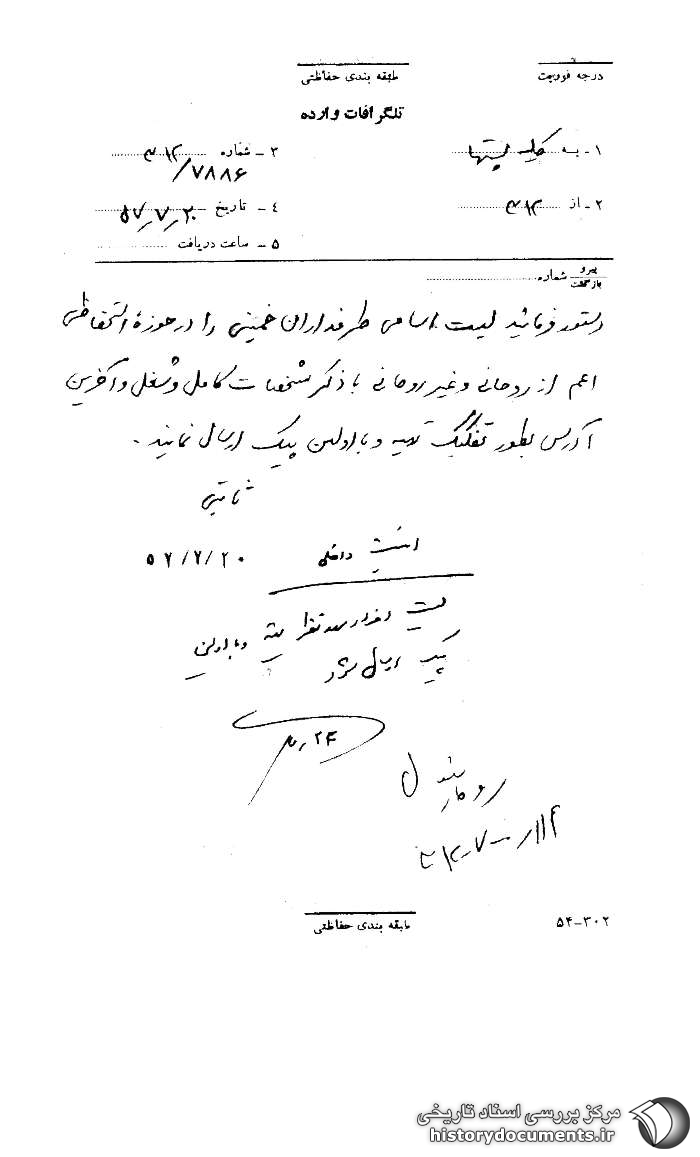 درجه فوریت
طبقه بندی حفاظتی
تلگرافات وارده
۱ - به کلیه پستها
۳ - شماره ۳۱۲
/۷۸۸۶
۲ - از ۳۱۲
۴ - تاریخ ۵۷٫۷٫۲۰
۵ - ساعت دریافت
پیرو
بازگشت شماره
دستور فرمائید لیست اسامی طرفداران خمینی را در حوزه استحفاظی
اعم از روحانی و غیر روحانی با ذکر مشخصات کامل و شغل و آخرین
آدرس بطور تفکیک تهیه و با اولین پیک ارسال نمایند.
ثابتی
امنیت داخلی ۵۷/۷/۲۰
لیست تهیه و با اولین
پیک ارسال شود
۷٫۲۴
طبقه بندی حفاظتی
۵۴-۳۰۲
مرکز بررسی اسناد تاریخی
historydocuments.ir